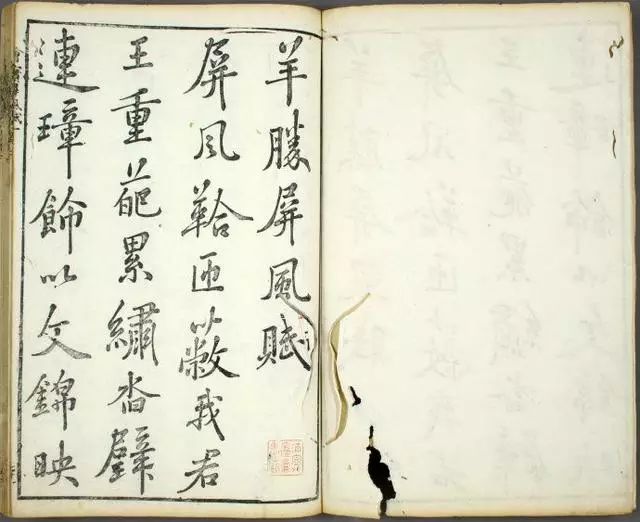 羊勝屏風賦
屏风鞈匝蔽我君
王重葩累繡沓璧
連璋飾以文錦映